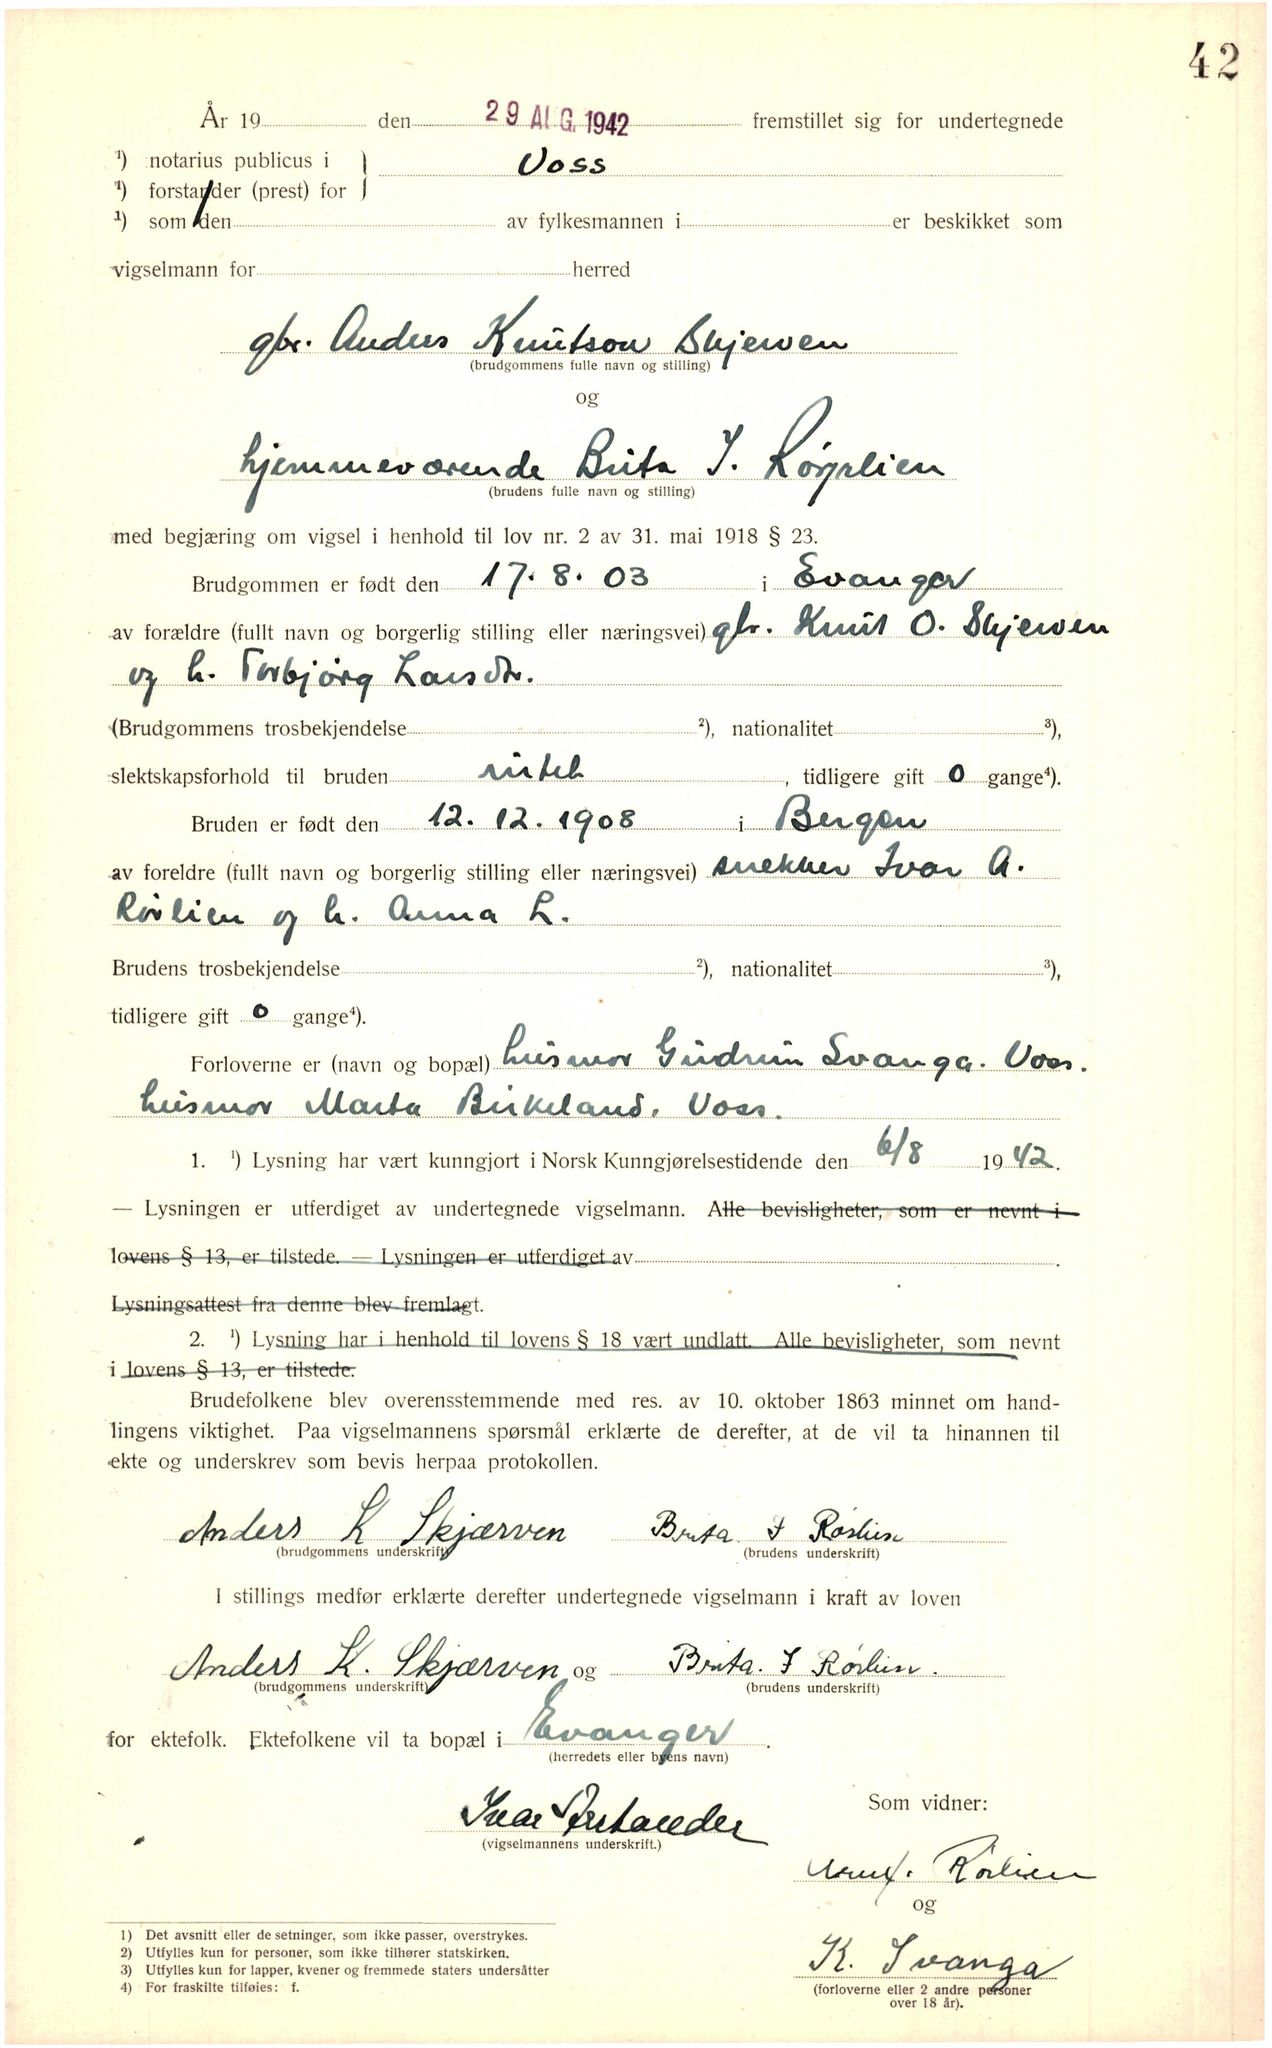 42
År 19 den 29 AUG. 1942 fremstillet sig for undertegnede
¹) notarius publicus i } Voss
¹) forstander (prest) for }
¹) som den av fylkesmannen i er beskikket som
vigselmann for herred
gbr. Anders Knutson Skjerven
(brudgommens fulle navn og stilling)
og
hjemmeværende Brita I. Rørlien
(brudens fulle navn og stilling)
med begjæring om vigsel i henhold til lov nr. 2 av 31. mai 1918 § 23.
Brudgommen er født den 17. 8. 03 i Evanger
av forældre (fullt navn og borgerlig stilling eller næringsvei) gbr. Knut O. Skjerven
og h. Torbjørg Larsdtr.
(Brudgommens trosbekjendelse ²), nationalitet ³),
slektskapsforhold til bruden intet, tidligere gift 0 gange⁴).
Bruden er født den 12. 12. 1908 i Bergen
av foreldre (fullt navn og borgerlig stilling eller næringsvei) snekker Ivar A.
Rørlien og h. Anna L.
Brudens trosbekjendelse ²), nationalitet ³),
tidligere gift 0 gange⁴).
Forloverne er (navn og bopæl) husmor Gudrun Ivanga. Voss.
husmor Marta Birkeland. Voss.
1. ¹) Lysning har vært kunngjort i Norsk Kunngjørelsestidende den 6/8 1942.
— Lysningen er utferdiget av undertegnede vigselmann. Alle bevisligheter, som er nevnt i
lovens § 13, er tilstede. — Lysningen er utferdiget av .
Lysningsattest fra denne blev fremlagt.
2. ¹) Lysning har i henhold til lovens § 18 vært undlatt. Alle bevisligheter, som nevnt
i lovens § 13, er tilstede.
Brudefolkene blev overensstemmende med res. av 10. oktober 1863 minnet om hand-
lingens viktighet. Paa vigselmannens spørsmål erklærte de derefter, at de vil ta hinannen til
ekte og underskrev som bevis herpaa protokollen.
Anders K Skjærven Brita I Rørlien
(brudgommens underskrift) (brudens underskrift)
I stillings medfør erklærte derefter undertegnede vigselmann i kraft av loven
Anders K. Skjærven og Brita. I Rørlien.
(brudgommens underskrift) (brudens underskrift)
for ektefolk. Ektefolkene vil ta bopæl i Evanger.
(herredets eller byens navn)
Ivar
(vigselmannens underskrift.)
Som vidner:
Rørlien
og
K. Ivanga
(forloverne eller 2 andre personer
over 18 år).
1) Det avsnitt eller de setninger, som ikke passer, overstrykes.
2) Utfylles kun for personer, som ikke tilhører statskirken.
3) Utfylles kun for lapper, kvener og fremmede staters undersåtter
4) For fraskilte tilføies: f.